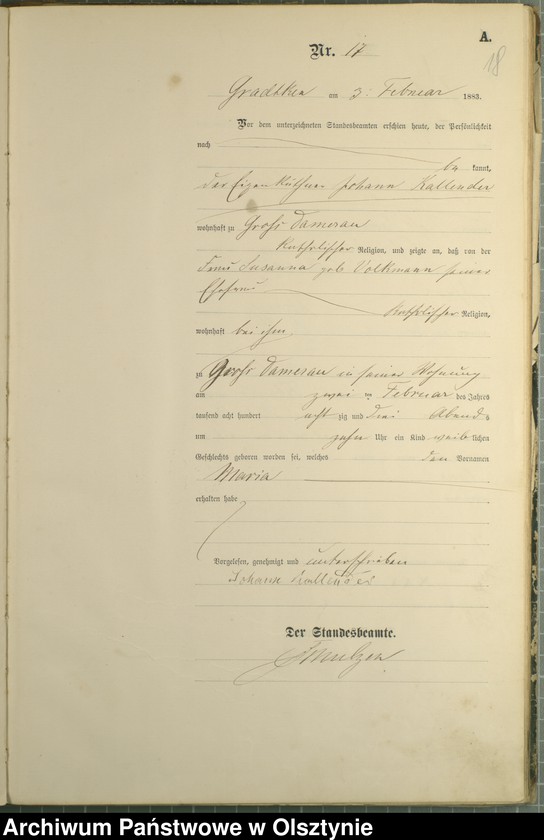 A.
18
Nr. 17
Gradtken am 3. Februar 1883.
Vor dem unterzeichneten Standesbeamten erschien heute, der Persönlichkeit
nach
be kannt,
der Eigenkäthner Johann Kallender
wohnhaft zu Groß Damerau
katholischer Religion, und zeigte an, daß von der
Frau Susanna geb. Volkmann seiner
Ehefrau
katholischer Religion,
wohnhaft bei ihm
zu Groß Damerau in seiner Wohnung
am zwei ten Februar des Jahres
tausend acht hundert acht zig und drei Abends
um zehn Uhr ein Kind weib lichen
Geschlechts geboren worden sei, welches den Vornamen
Maria
erhalten habe
Vorgelesen, genehmigt und unterschrieben
Johann Kallender
Der Standesbeamte.
Archiwum Państwowe w Olsztynie